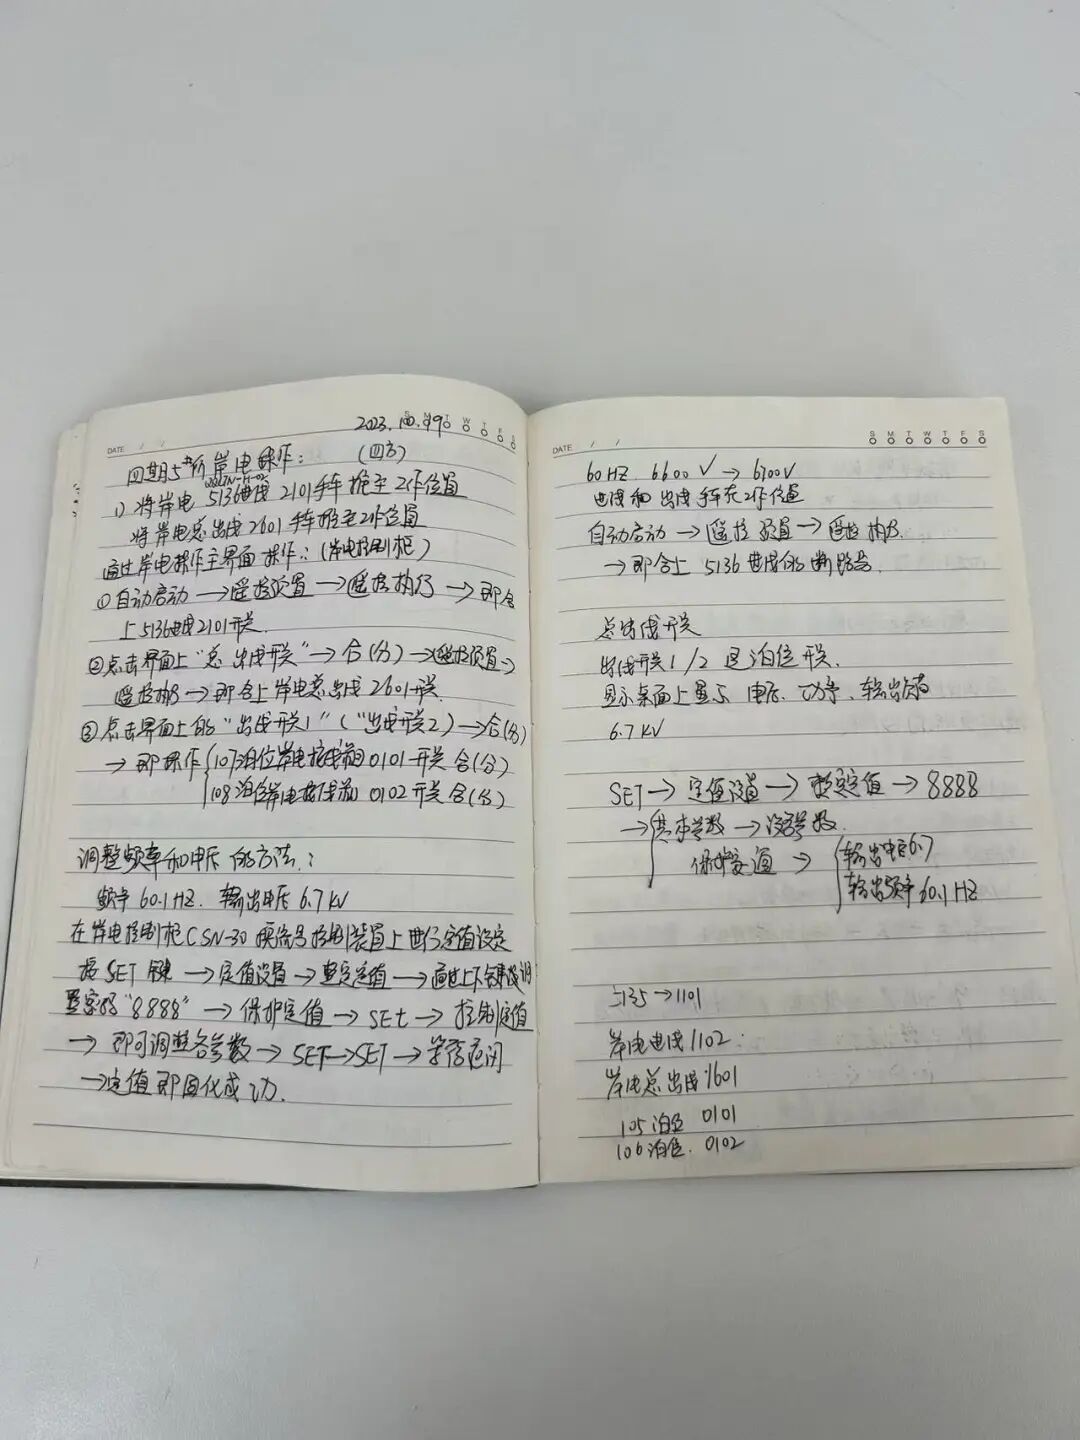 DATE / /
2023.10.19
S M T W T F S
四期5#所岸电操作： (四方)
1) 将岸电 5136进线 2101手车摇至工作位置
将岸电总出线2601手车摇至工作位置
通过岸电操作主界面操作：(岸电控制柜)
①自动启动→遥控预置→遥控执行→即合
上5136进线2101开关.
②点击界面上"总出线开关"→合(分)→遥控预置→
遥控执行→即合上岸电总出线2601开关.
③点击界面上的"出线开关1"("出线开关2)→合(分)
→即操作{107泊位岸电接线箱0101开关合(分)
108泊位岸电接线箱 0102开关合(分)
调整频率和电压的方法：
频率60.1HZ. 输出电压6.7KV
在岸电控制柜CSN-30 装置上进行定值设定
按SET键→定值设置→整定定值→通过上下键调
置密码"8888"→保护定值→SEt→控制定值
→即可调整各参数→SET→SET→等信返闭
→定值即固化成功.
DATE / /
S M T W T F S
60HZ. 6600V→6700V
进线和出线手车在工作位置
自动启动→遥控预置→遥控执行
→即合上5136进线的断路器.
总出线开关
出线开关1/2 是泊位开关.
显示桌面上显示 电压、功率、输出频率
6.7KV
SET→定值设置→整定定值→8888
→{基本参数→设备参数.
保护定值→{输出电压6.7
输出频率60.1HZ
5135→1101
岸电进线1102.
岸电总出线1601
105泊位 0101
106泊位. 0102